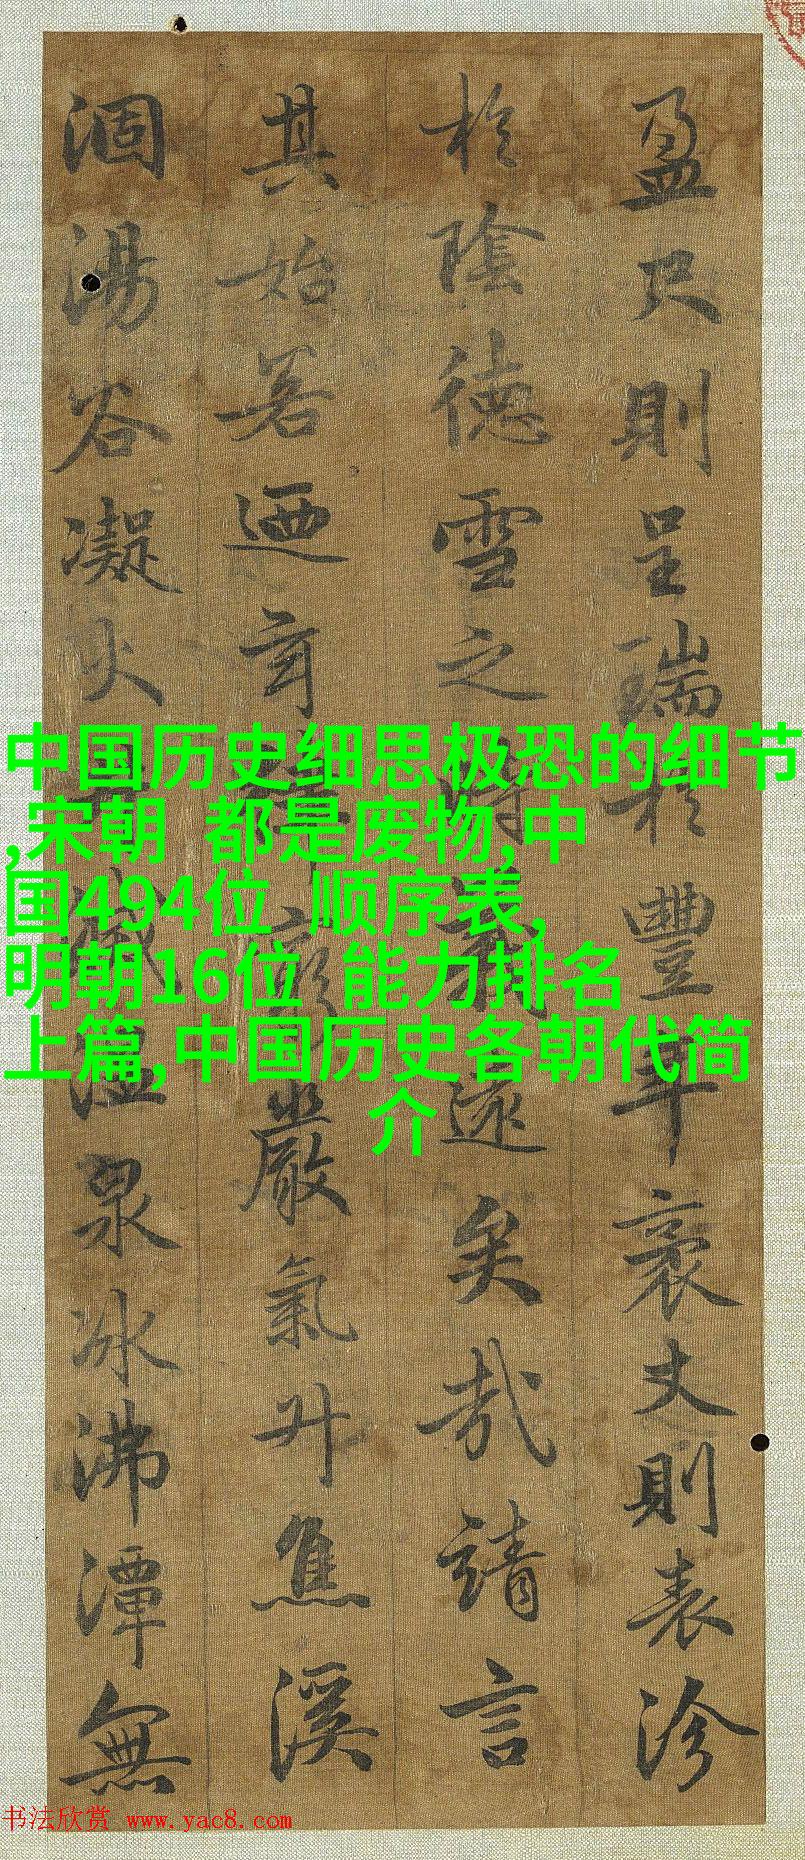 盈尺則呈瑞於豐年袤丈則表沴
於陰德雪之時義遠矣哉請言
其始若迺玄律窮嚴氣升焦溪
涸湯谷凝火井滅溫泉冰沸潭無
中国历史细思极恐的细节
,宋朝 都是废物,中
国494位 顺序表,
明朝16位 能力排名
上篇,中国历史各朝代简
介
书法欣赏 www.yac8.com